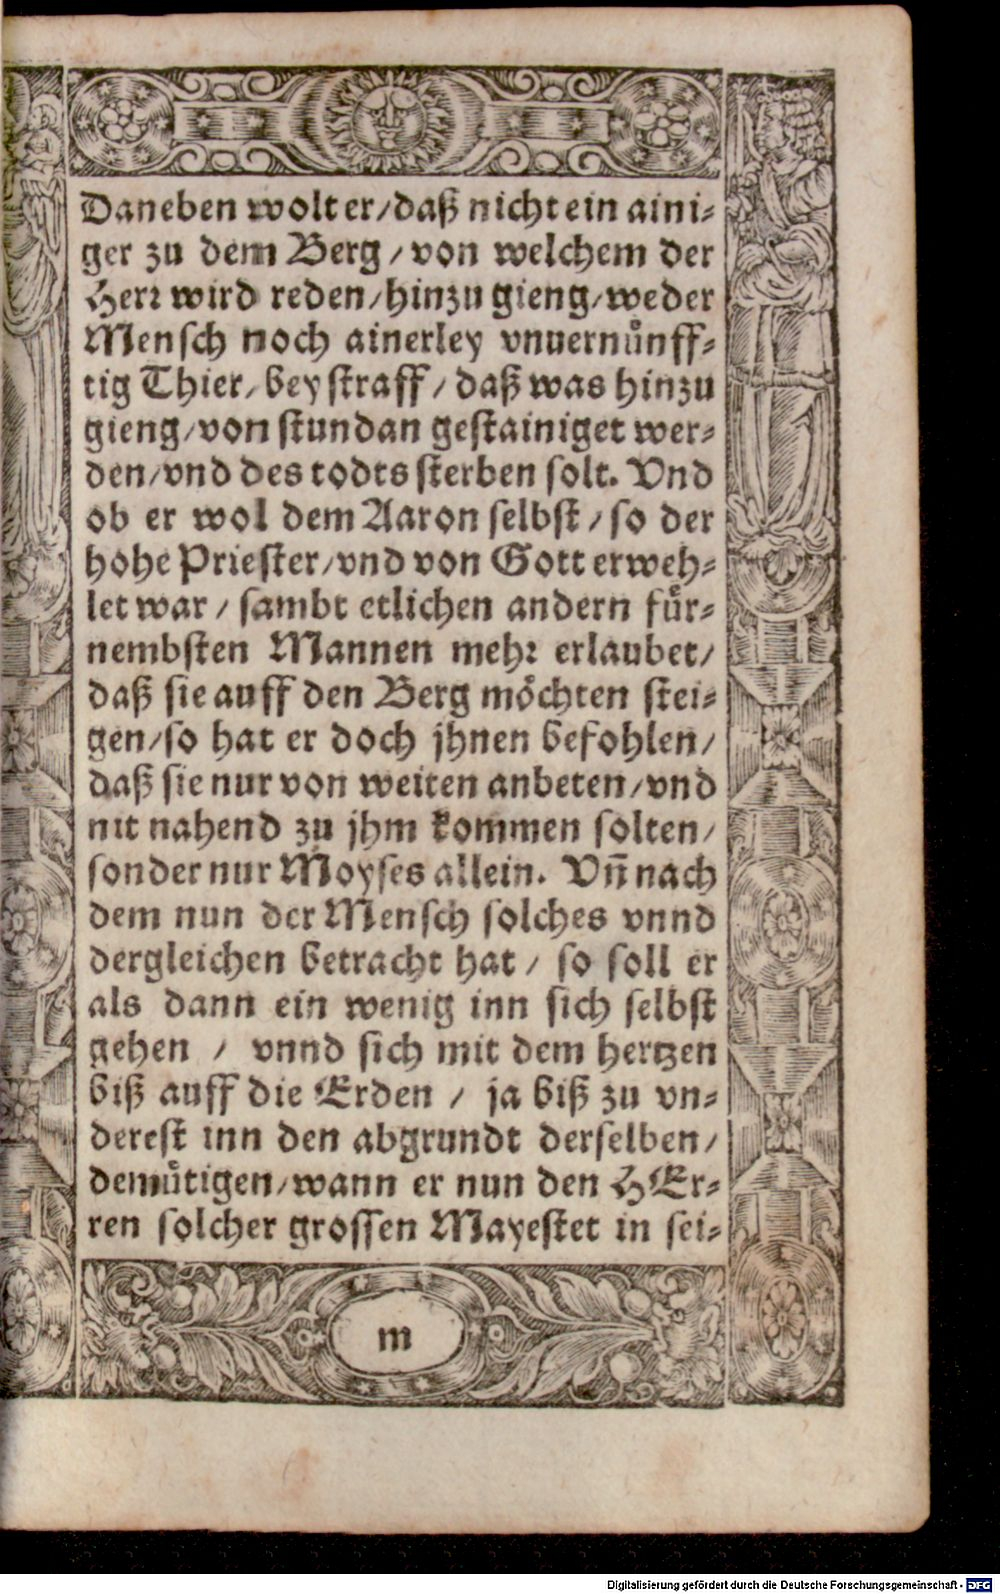 Daneben wolt er/daß nicht ein aini⸗
ger zu dem Berg/von welchem der
Herr wird reden/hinzu gieng/weder
Mensch noch ainerley vnuernůnff⸗
tig Thier/bey straff/daß was hinzu
gieng/von stundan gestainiget wer⸗
den/vnd des todts sterben solt. Vnd
ob er wol dem Aaron selbst/so der
hohe Priester/vnd von Gott erweh⸗
let war/sambt etlichen andern fůr⸗
nembsten Mannen mehr erlaubet/
daß sie auff den Berg möchten stei⸗
gen/so hat er doch jhnen befohlen/
daß sie nur von weiten anbeten/vnd
nit nahend zu jhm kommen solten/
sonder nur Moyses allein. Vn̄ nach
dem nun der Mensch solches vnnd
dergleichen betracht hat/so soll er
als dann ein wenig inn sich selbst
gehen/vnnd sich mit dem hertzen
biß auff die Erden/ja biß zu vn⸗
derest inn den abgrundt derselben/
demůtigen/wann er nun den HEr⸗
ren solcher grossen Mayestet in sei⸗
m
Digitalisierung gefördert durch die Deutsche Forschungsgemeinschaft - DFG